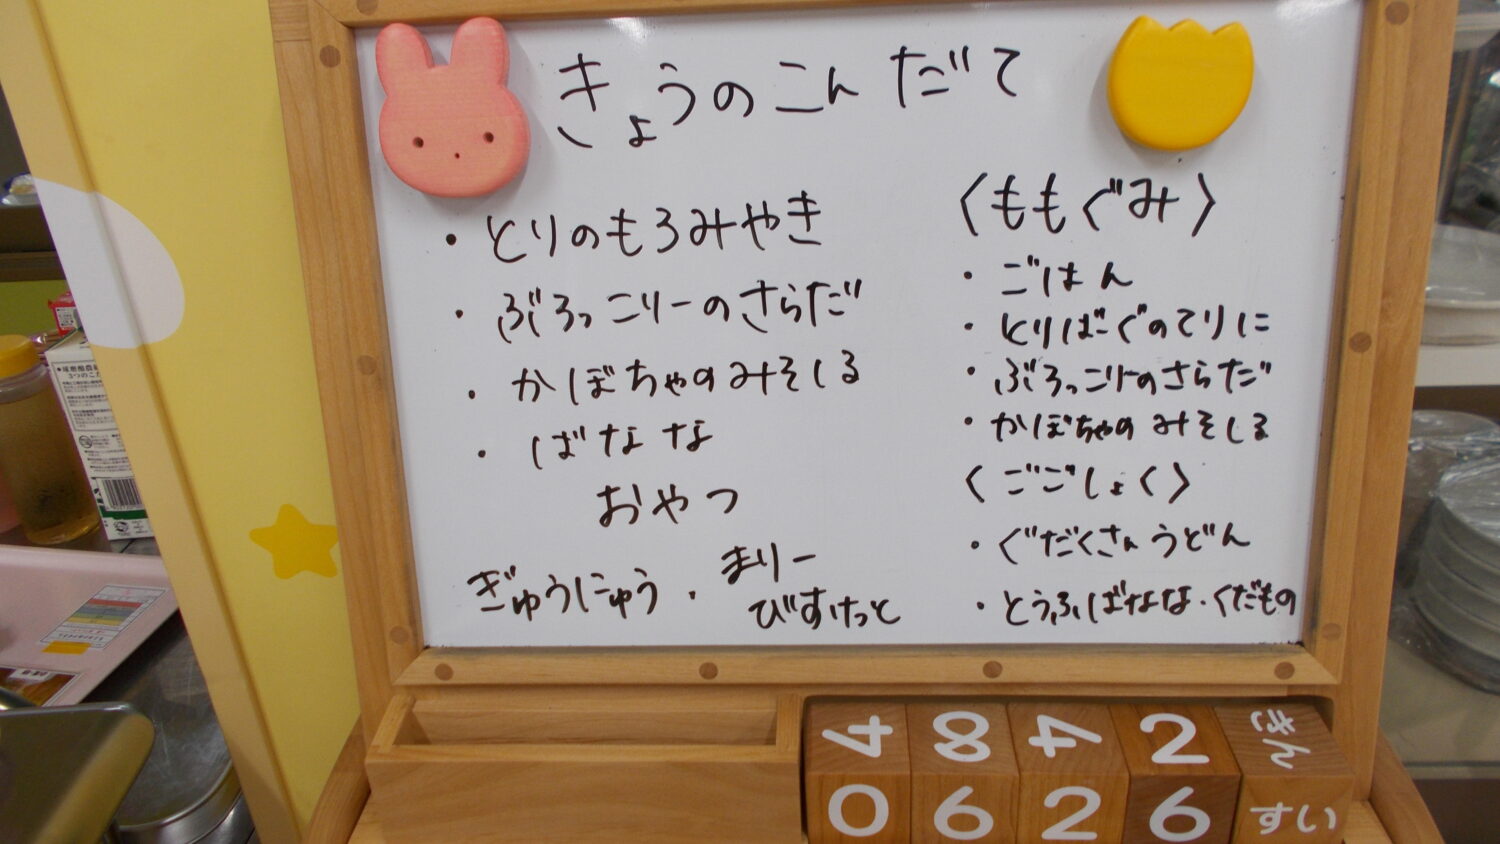 きょうのこんだて
・とりのもろみやき
・ぶろっこりーのさらだ
・かぼちゃのみそしる
・ばなな
おやつ
ぎゅうにゅう・まりー
びすけっと
〈ももぐみ〉
・ごはん
・とりばーぐのてりに
・ぶろっこりーのさらだ
・かぼちゃのみそしる
〈ごごしょく〉
・ぐだくさんうどん
・とうふばなな・くだもの
4 8 4 2 きん
0 6 2 6 すい
3つのこだ